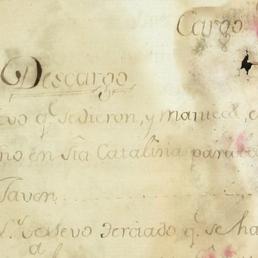 Cargo
Descargo
evo q.^e se dieron, y manteca, e
no en S.ta Catalina para
Javon
sevo derciado q.^e se ha